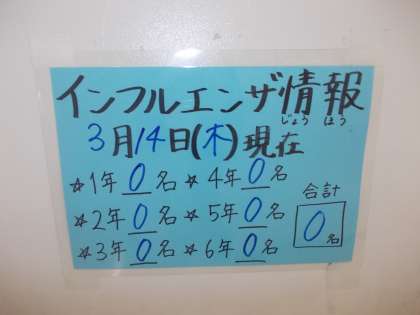 インフルエンザ情報
じょう ほう
3月14日(木)現在
☆1年 0名 ☆4年 0名
☆2年 0名 ☆5年 0名
☆3年 0名 ☆6年 0名
合計
0名